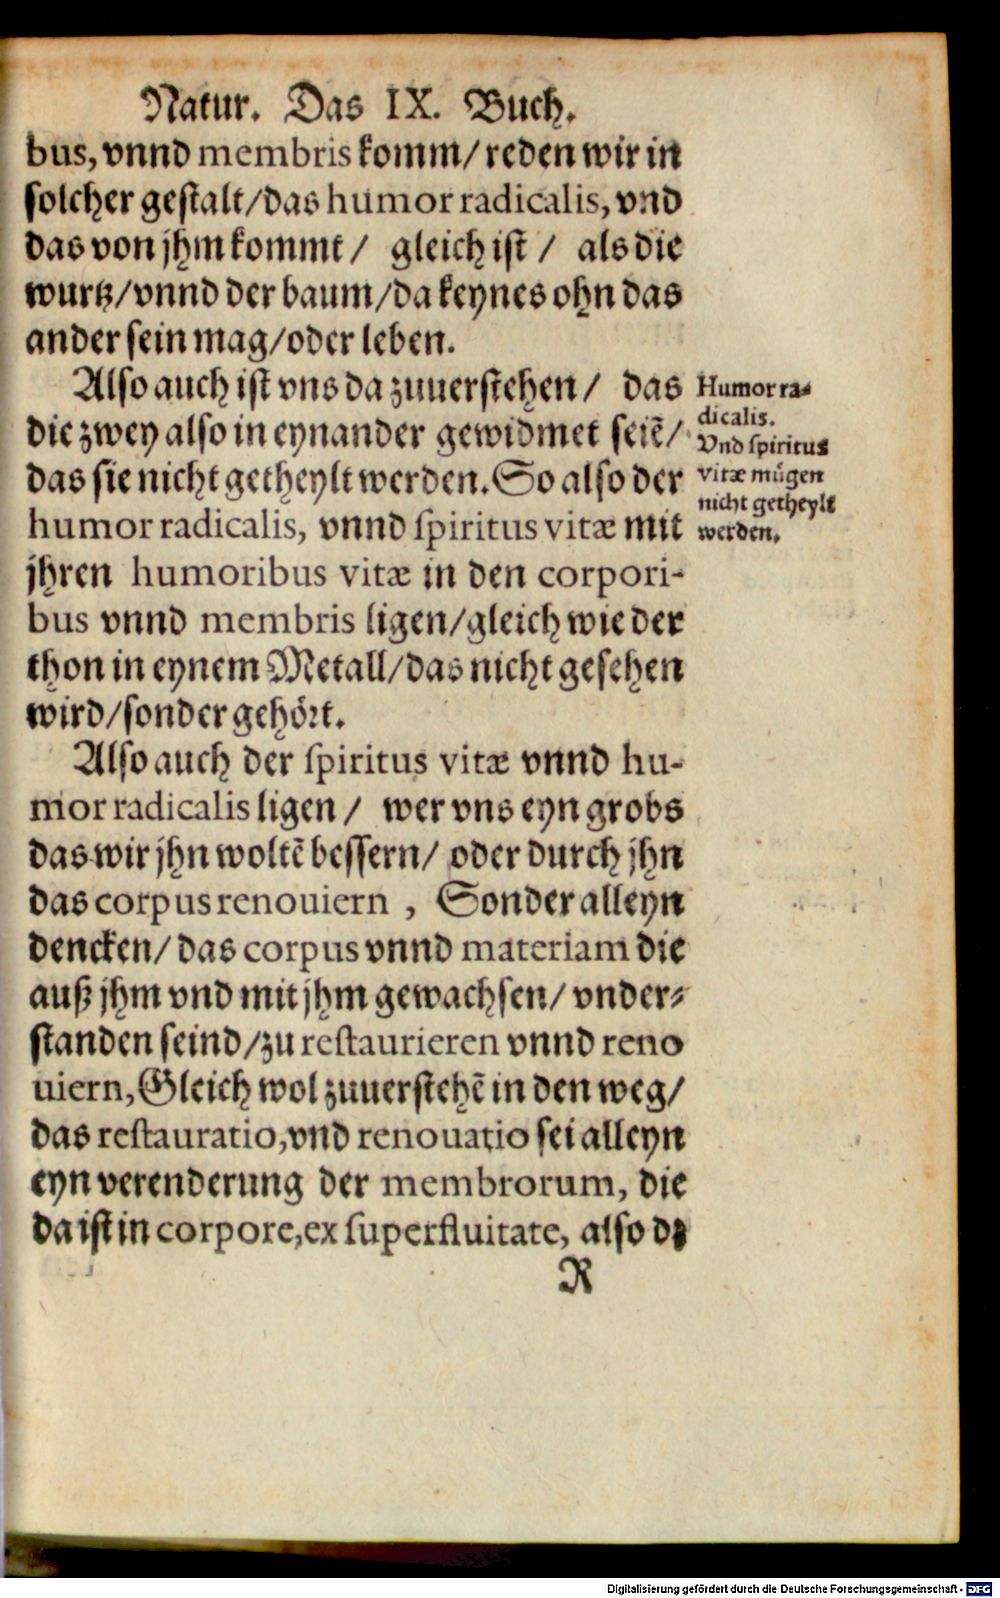 Natur. Das IX. Buch.
bus, vnnd membris komm/ reden wir in
solcher gestalt/ das humor radicalis, vnd
das von jhm kommt/ gleich ist/ als die
wurtz/ vnnd der baum/ da keynes ohn das
ander sein mag/ oder leben.
Also auch ist vns da zuuerstehen/ das
die zwey also in eynander gewidmet seiẽ/
das sie nicht getheylt werden. So also der
humor radicalis, vnnd spiritus vitæ mit
jhren humoribus vitæ in den corpori-
bus vnnd membris ligen/ gleich wie der
thon in eynem Metall/ das nicht gesehen
wird/ sonder gehört.
Also auch der spiritus vitæ vnnd hu-
mor radicalis ligen/ wer vns eyn grobs
das wir jhn woltẽ bessern/ oder durch jhn
das corpus renouiern, Sonder alleyn
dencken/ das corpus vnnd materiam die
auß jhm vnd mit jhm gewachsen/ vnder-
standen seind/ zu restaurieren vnnd reno
uiern, Gleich wol zuuerstehẽ in den weg/
das restauratio, vnd renouatio sei alleyn
eyn verenderung der membrorum, die
da ist in corpore, ex superfluitate, also dz
R
Humor ra-
dicalis.
Vnd spiritus
vitæ mügen
nicht getheylt
werden.
Digitalisierung gefördert durch die Deutsche Forschungsgemeinschaft - DFG